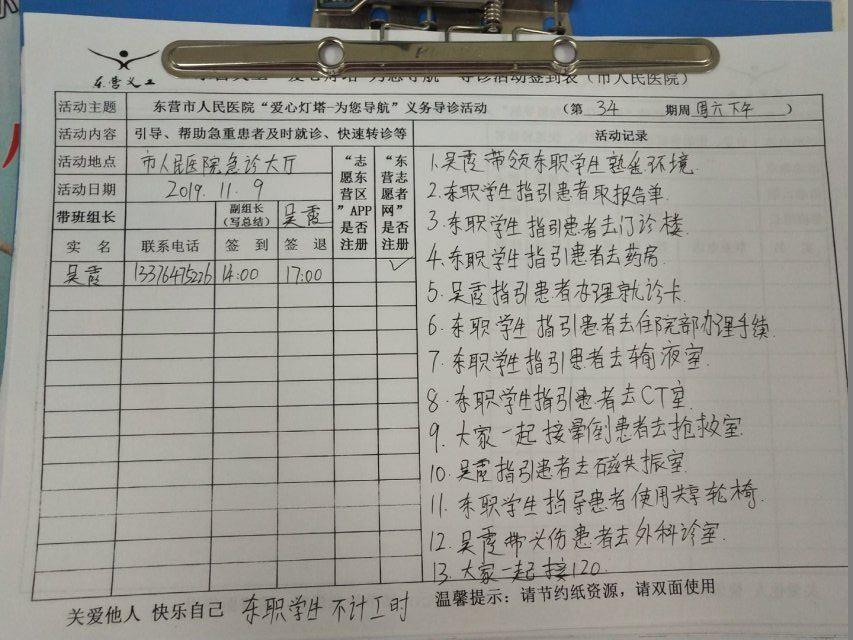 东营义工
东营义工“爱心灯塔-为您导航”导诊活动签到表（市人民医院）
活动主题 东营市人民医院“爱心灯塔-为您导航”义务导诊活动 （第 34 期周 周六下午 ）
活动内容 引导、帮助急重患者及时就诊、快速转诊等 活动记录
活动地点 市人民医院急诊大厅
活动日期 2019.11.9
带班组长 副组长（写总结） 吴霞
“志愿东营区”APP是否注册
“东营志愿者网”是否注册
实 名 联系电话 签 到 签 退
吴霞 13376475226 14:00 17:00 ✓
1.吴霞带领东职学生熟悉环境.
2.东职学生指引患者取报告单.
3.东职学生指引患者去门诊楼.
4.东职学生指引患者去药房.
5.吴霞指引患者办理就诊卡
6.东职学生指引患者去住院部办理手续.
7.东职学生指引患者去输液室.
8.东职学生指引患者去CT室.
9.大家一起接晕倒患者去抢救室.
10.吴霞指引患者去磁共振室.
11.东职学生指导患者使用共享轮椅.
12.吴霞带头伤患者去外科诊室.
13.大家一起接120.
关爱他人 快乐自己 东职学生不计工时 温馨提示：请节约纸资源，请双面使用